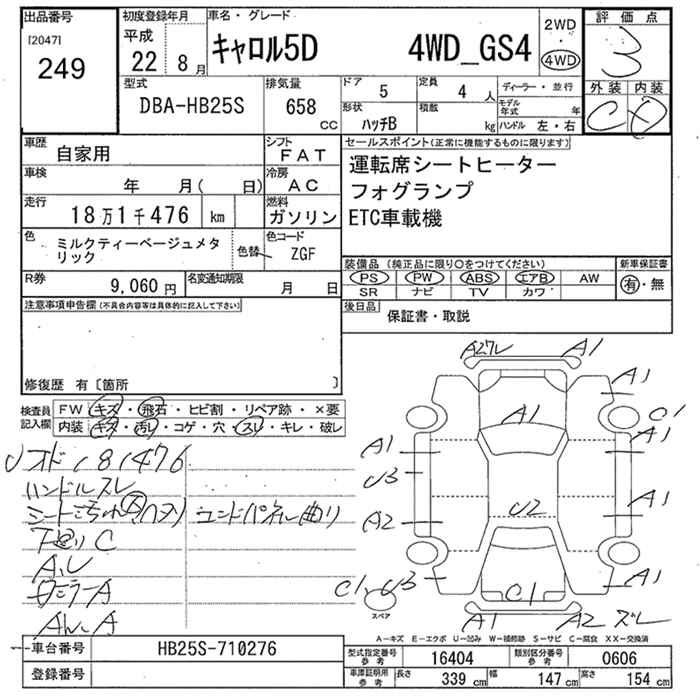 出品番号
[2047]
249
初度登録年月
平成
22年 8月
車名・グレード
キャロル5D 4WD_GS4
2WD
・
4WD
評価点
3
外装 内装
C D
型式
DBA-HB25S
排気量
658 CC
ドア 5
定員 4人
形状 ハッチB
積載 kg
ディーラー・並行
モデル年式 年
ハンドル 左・右
車歴 自家用
シフト FAT
車検 年 月( 日)
冷房 AC
走行 18万1千476 km
燃料 ガソリン
色 ミルクティーベージュメタリック
色替
色コード ZGF
R券 9,060円
名変通知期限 月 日
セールスポイント(正常に機能するものに限ります)
運転席シートヒーター
フォグランプ
ETC車載機
装備品 (純正品に限り○をつけてください)
PS PW ABS エアB AW
SR ナビ TV カワ
新車保証書
有・無
後日品 保証書・取説
注意事項申告欄(不具合内容等は具体的に記入して下さい)
修復歴 有〔箇所 〕
検査員記入欄
FW キズ・飛石・ヒビ割・リペア跡・×要
内装 キズ・汚レ・コゲ・穴・スレ・キレ・破レ
ソオド181476
ハンドルスレ
下廻りC
コンドパネル曲り
A2ワレ A1
A1
A1
C1
A1 A1
U3
A2 U2 A1
C1,U3 C1 A1
A1 A2 ズレ
スペア
A−キズ E−エクボ U−凹み W−補修跡 S−サビ C−腐食 XX−交換済
車台番号 HB25S-710276
登録番号
型式指定番号参考 16404
類別区分番号参考 0606
車庫証明用参考 長さ 339cm 幅 147cm 高さ 154cm